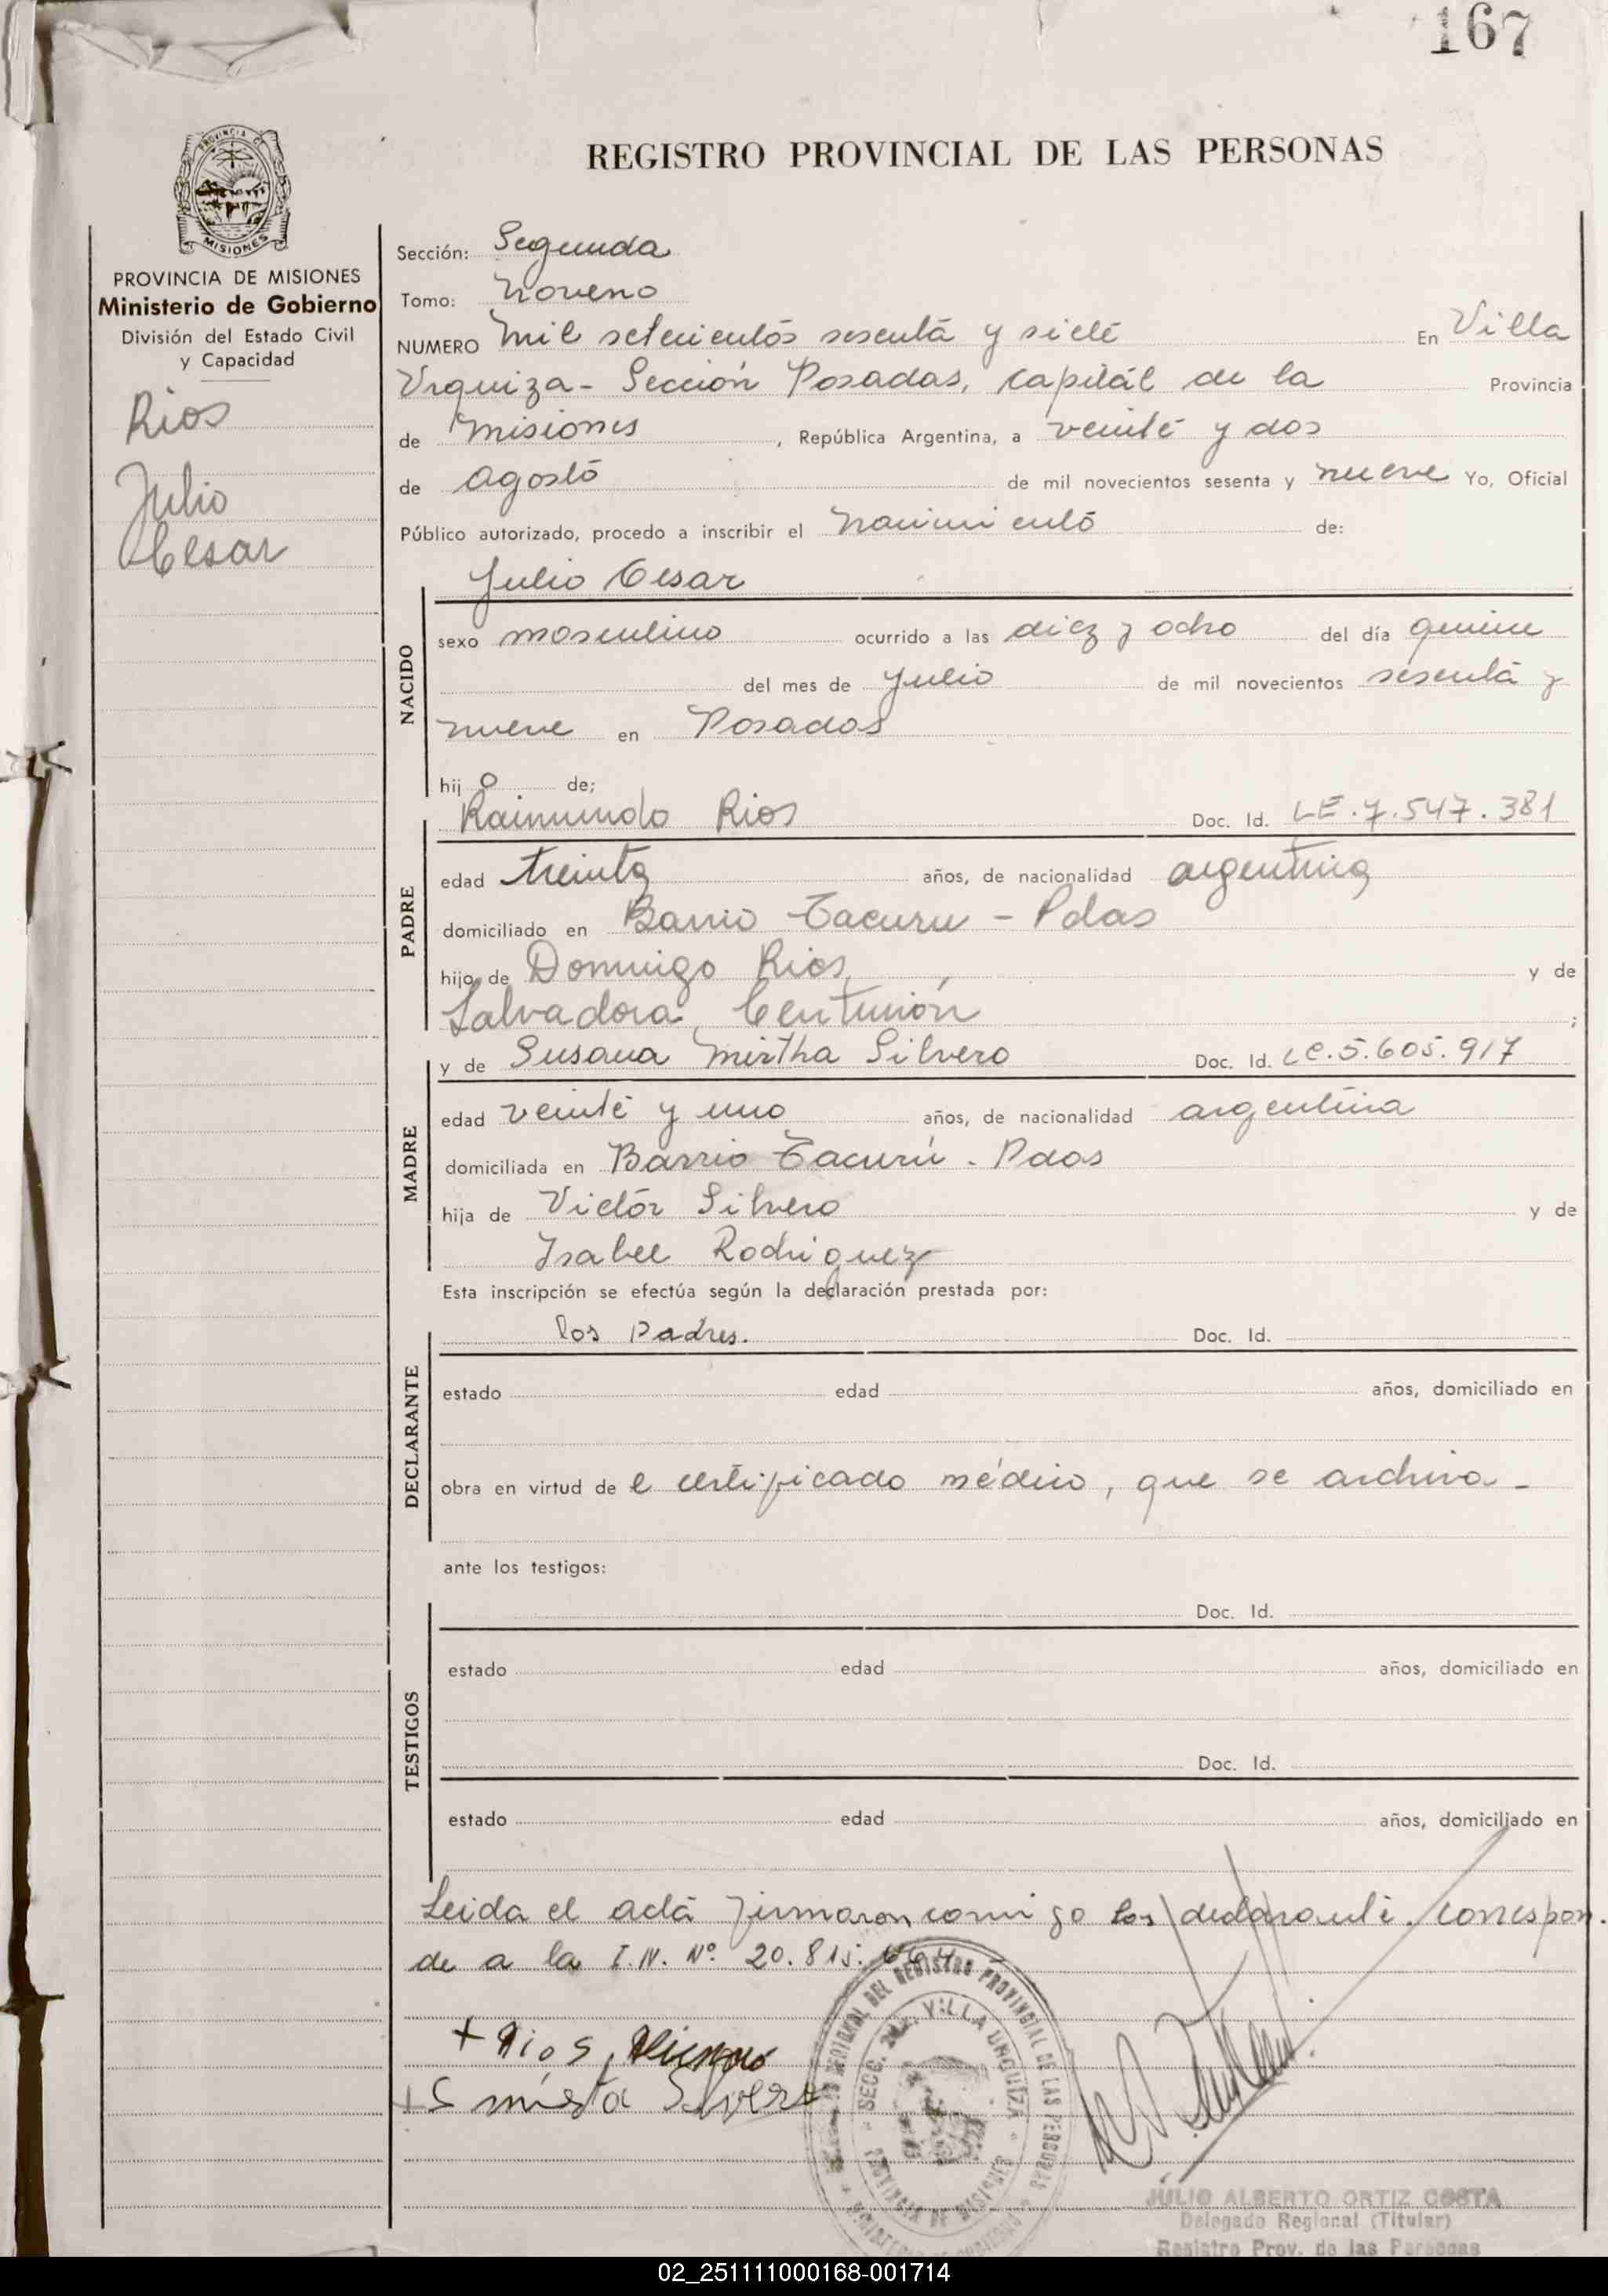 167
PROVINCIA DE MISIONES
REGISTRO PROVINCIAL DE LAS PERSONAS
PROVINCIA DE MISIONES
Ministerio de Gobierno
División del Estado Civil
y Capacidad
Rios
Julio
Cesar
Sección: Segunda
Tomo: Noveno
NUMERO mil setecientos sesenta y siete En Villa
Urquiza - Sección Posadas, capital de la Provincia
de Misiones, República Argentina, a veinte y dos
de agosto de mil novecientos sesenta y nueve Yo, Oficial
Público autorizado, procedo a inscribir el nacimiento de:
Julio Cesar
NACIDO
sexo masculino ocurrido a las diez y ocho del día quince
del mes de Julio de mil novecientos sesenta y
nueve en Posadas
hijo de;
Raimundo Rios Doc. Id. LE.7.547.381
PADRE
edad treinta años, de nacionalidad argentina
domiciliado en Barrio Tacuru - Pdas
hijo de Domingo Rios y de
Salvadora Centurión;
y de Susana Mirtha Silvero Doc. Id. LC.5.605.917
MADRE
edad veinte y uno años, de nacionalidad argentina
domiciliada en Barrio Tacurú. Pdas
hija de Victor Silvero y de
Isabel Rodriguez
Esta inscripción se efectúa según la declaración prestada por:
los Padres. Doc. Id.
DECLARANTE
estado edad años, domiciliado en
obra en virtud de el certificado médico, que se archiva -
ante los testigos:
Doc. Id.
TESTIGOS
estado edad años, domiciliado en
Doc. Id.
estado edad años, domiciliado en
Leida el acta firmaron conmigo los declarante. Correspon.
de a la I.N. Nº 20.815.
+ Rios,
+ S mirta Silvero
REGIONAL DEL REGISTRO PROVINCIAL DE LAS PERSONAS
SECC. VILLA URQUIZA
PROVINCIA DE MISIONES
JULIO ALBERTO ORTIZ COSTA
Delegado Regional (Titular)
Registro Prov. de las Personas
02_251111000168-001714